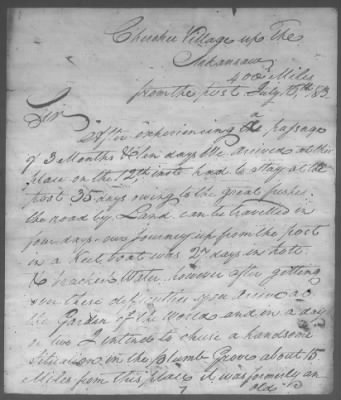 Village up The
Arkansaw
400 Miles
from the post July 15th 83
Sir
After experiencing a passage
of 3 Months & ten days We arrived at this
place on the 12th had to stay at the
post 35 days owing to the great
the road by Land can be travelled in
four days our Journey up from the post
in a Keel boat was 27 days in hot
& brackish Water however after getting
over these difficulties we arrive at
the Garden of the World and in a day
or two I intend to chuse a handsome
Situation in the plumb Grove about 15
Miles from this place it was formerly an
old